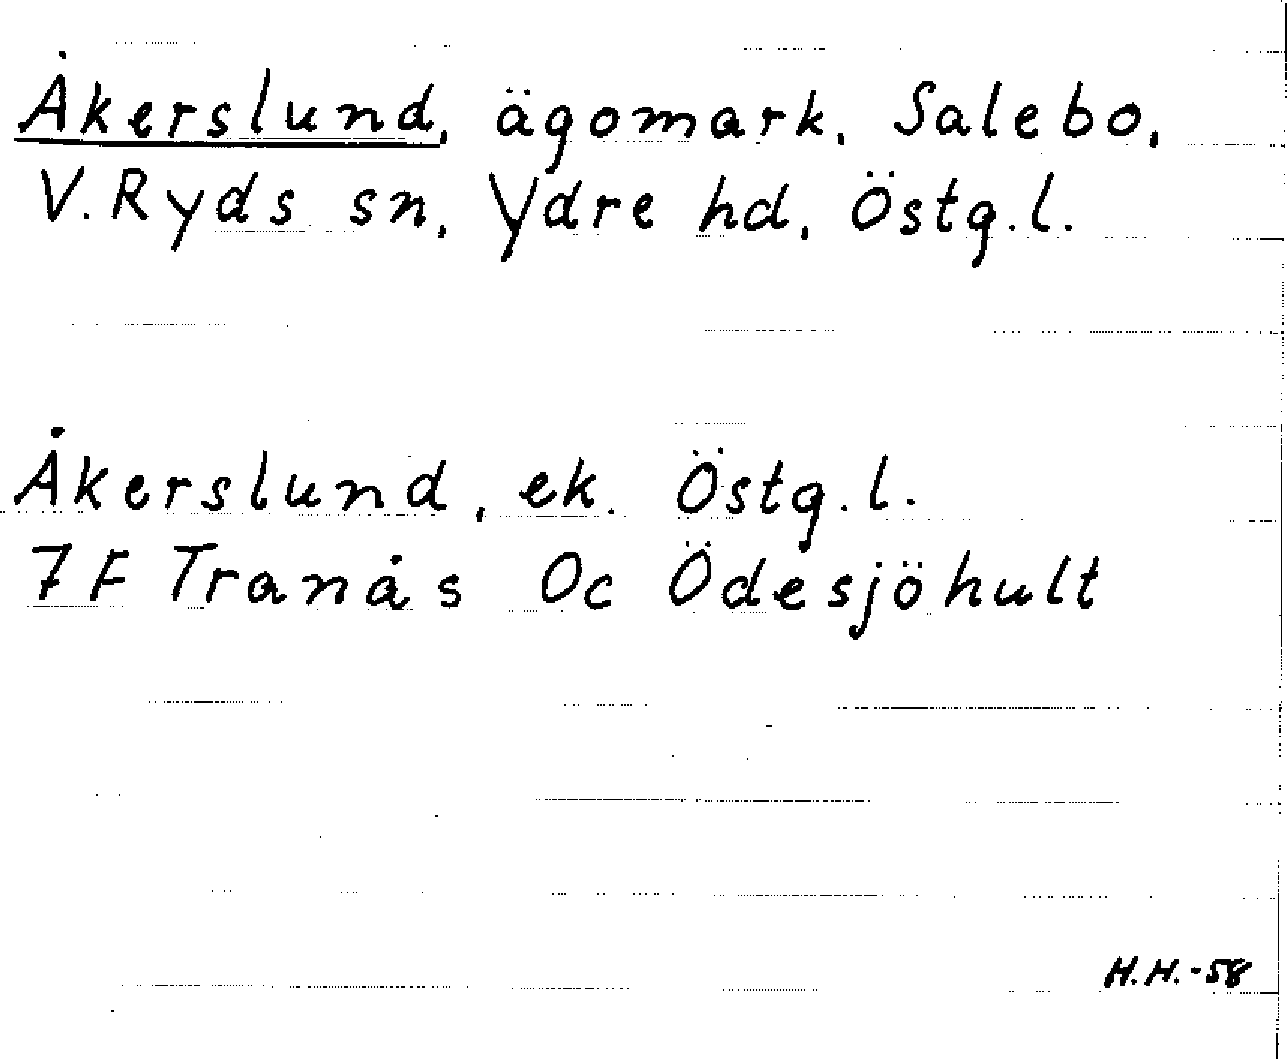 Åkerslund, ägomark, Salebo,
V. Ryds sn, Ydre hd, Östg.l.
Åkerslund, ek. Östg.l.
7F Tranås 0c Ödesjöhult
H.H.-58